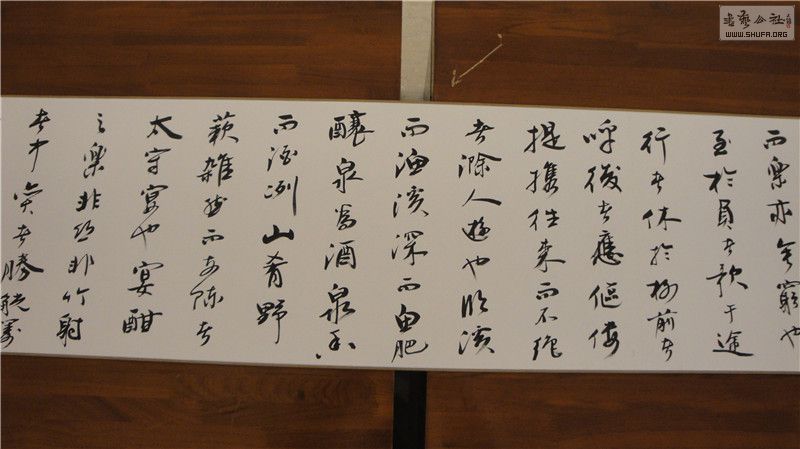 而樂亦無窮也
至於負者歌于途
行者休於樹前者
呼後者應傴僂
提攜往來而不絕
者滁人遊也臨溪
而漁溪深而魚肥
釀泉為酒泉香
而酒洌山肴野
蔌雜然而前陳者
太守宴也宴酣
之樂非絲非竹射
者中奕者勝觥籌
書藝公社
WWW.SHUFA.ORG